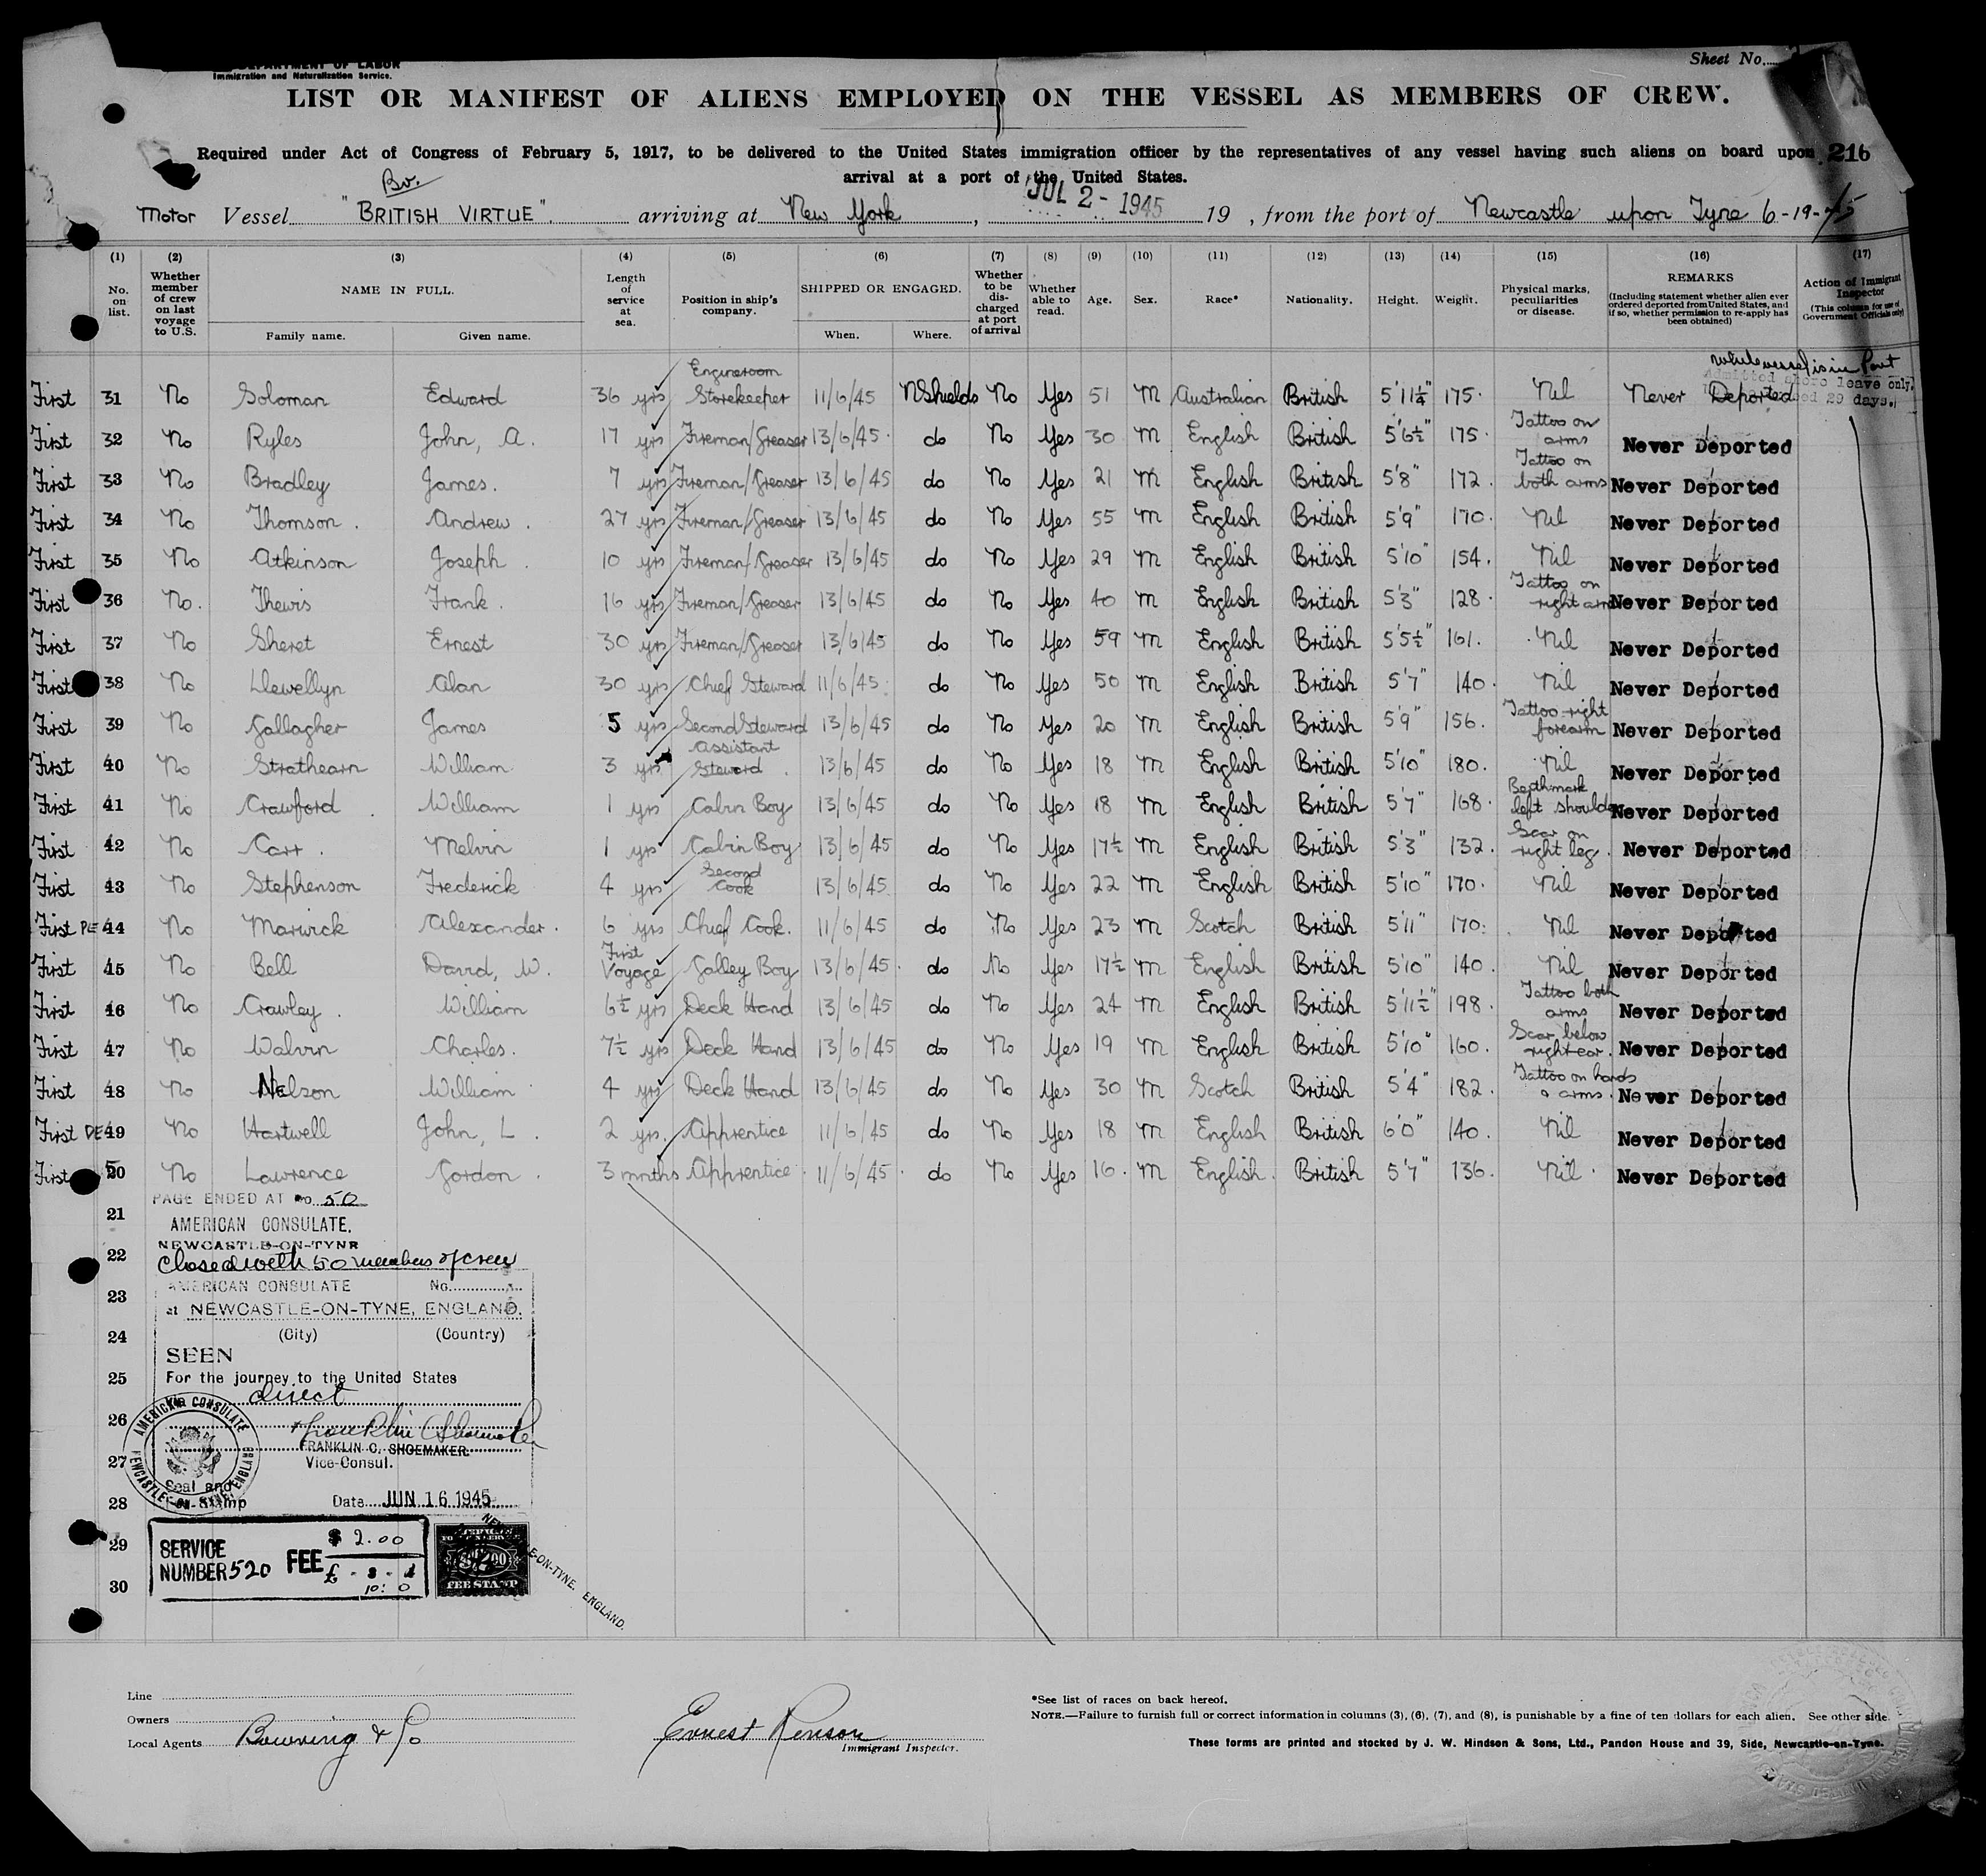 DEPARTMENT OF LABOR
Immigration and Naturalization Service.
Sheet No.
LIST OR MANIFEST OF ALIENS EMPLOYED ON THE VESSEL AS MEMBERS OF CREW.
Required under Act of Congress of February 5, 1917, to be delivered to the United States immigration officer by the representatives of any vessel having such aliens on board upon
216
arrival at a port of the United States.
Bv.
Motor Vessel "BRITISH VIRTUE" arriving at New York, JUL 2 - 1945 19 , from the port of Newcastle upon Tyne 6-19-45
(1) (2) (3) (4) (5) (6) (7) (8) (9) (10) (11) (12) (13) (14) (15) (16) (17)
No. on list. Whether member of crew on last voyage to U.S. NAME IN FULL. Family name. Given name. Length of service at sea. Position in ship's company. SHIPPED OR ENGAGED. When. Where. Whether to be discharged at port of arrival Whether able to read. Age. Sex. Race* Nationality. Height. Weight. Physical marks, peculiarities or disease. REMARKS (Including statement whether alien ever ordered deported from United States, and if so, whether permission to re-apply has been obtained) Action of Immigrant Inspector (This column for use of Government Officials only)
while vessel is in Port
Admitted shore leave only.
29 days.
First 31 No Soloman Edward 36 yrs Engineroom Storekeeper 11/6/45 N Shields No Yes 51 M Australian British 5'11¼" 175. Nil Never Deported
First 32 No Ryles John, A. 17 yrs Fireman/Greaser 13/6/45. do No Yes 30 M English British 5'6½" 175. Tattoo on arms Never Deported
First 33 No Bradley James. 7 yrs Fireman/Greaser 13/6/45 do No Yes 21 M English British 5'8" 172. Tattoo on both arms Never Deported
First 34 No Thomson. Andrew. 27 yrs Fireman/Greaser 13/6/45 do No Yes 55 M English British 5'9" 170. Nil Never Deported
First 35 No Atkinson Joseph. 10 yrs Fireman/Greaser 13/6/45 do No Yes 29 M English British 5'10" 154. Nil Never Deported
First 36 No. Thewis Frank. 16 yrs Fireman/Greaser 13/6/45 do No Yes 40 M English British 5'3" 128. Tattoo on right arm Never Deported
First 37 No Sheret Ernest 30 yrs Fireman/Greaser 13/6/45 do No Yes 59 M English British 5'5½" 161. Nil Never Deported
First 38 No Llewellyn Alan 30 yrs Chief Steward 11/6/45. do No Yes 50 M English British 5'7" 140. Nil Never Deported
First 39 No Gallagher James 5 yrs Second Steward 13/6/45 do No Yes 20 M English British 5'9" 156. Tattoo right forearm Never Deported
First 40 No Strathearn William 3 yrs Assistant Steward. 13/6/45 do No Yes 18 M English British 5'10" 180. Nil Never Deported
First 41 No Crawford. William 1 yrs Cabin Boy 13/6/45 do No Yes 18 M English British 5'7" 168. Berthmark left shoulder Never Deported
First 42 No Carr. Melvin 1 yrs Cabin Boy 13/6/45 do No Yes 17½ M English British 5'3" 132. Scar on right leg. Never Deported
First 43 No Stephenson Frederick 4 yrs Second Cook 13/6/45. do No Yes 22 M English British 5'10" 170. Nil Never Deported
First PE 44 No Marwick Alexander. 6 yrs Chief Cook. 11/6/45 do No Yes 23 M Scotch British 5'11" 170. Nil Never Deported
First 45 No Bell David, W. First Voyage Galley Boy 13/6/45. do No Yes 17½ M English British 5'10" 140. Nil Never Deported
First 46 No Crawley. William 6½ yrs Deck Hand 13/6/45 do No Yes 24 M English British 5'11½" 198. Tattoo both arms Never Deported
First 47 No Walvin Charles. 7½ yrs Deck Hand 13/6/45 do No Yes 19 M English British 5'10" 160. Scar below right ear. Never Deported
First 48 No Nelson William 4 yrs Deck Hand 13/6/45 do No Yes 30 M Scotch British 5'4" 182. Tattoo on hands & arms. Never Deported
First PE 49 No Hartwell John, L. 2 yrs. Apprentice 11/6/45 do No Yes 18 M English British 6'0" 140. Nil Never Deported
First 50 No Lawrence Gordon. 3 mnths Apprentice. 11/6/45. do No Yes 16. M English. British 5'7" 136. Nil. Never Deported
PAGE ENDED AT No. 50
21
AMERICAN CONSULATE.
NEWCASTLE-ON-TYNE
22
Closed with 50 members of crew
AMERICAN CONSULATE No.
23
at NEWCASTLE-ON-TYNE, ENGLAND.
24
(City) (Country)
SEEN
25
For the journey to the United States
direct
26
Franklin C Shoemaker
FRANKLIN C. SHOEMAKER.
27
Vice-Consul.
AMERICAN CONSULATE NEWCASTLE-ON-TYNE, ENGLAND
Seal and
28
Fee Stamp Date JUN 16 1945
29
SERVICE NUMBER 520 FEE $ 2.00
£ - s - d
10: 0
FEE STAMP
NEWCASTLE-ON-TYNE. ENGLAND.
30
Line
Owners
Local Agents Bowring & Co
Ernest Renson
Immigrant Inspector.
*See list of races on back hereof.
NOTE.—Failure to furnish full or correct information in columns (3), (6), (7), and (8), is punishable by a fine of ten dollars for each alien. See other side.
These forms are printed and stocked by J. W. Hindson & Sons, Ltd., Pandon House and 39, Side, Newcastle-on-Tyne.